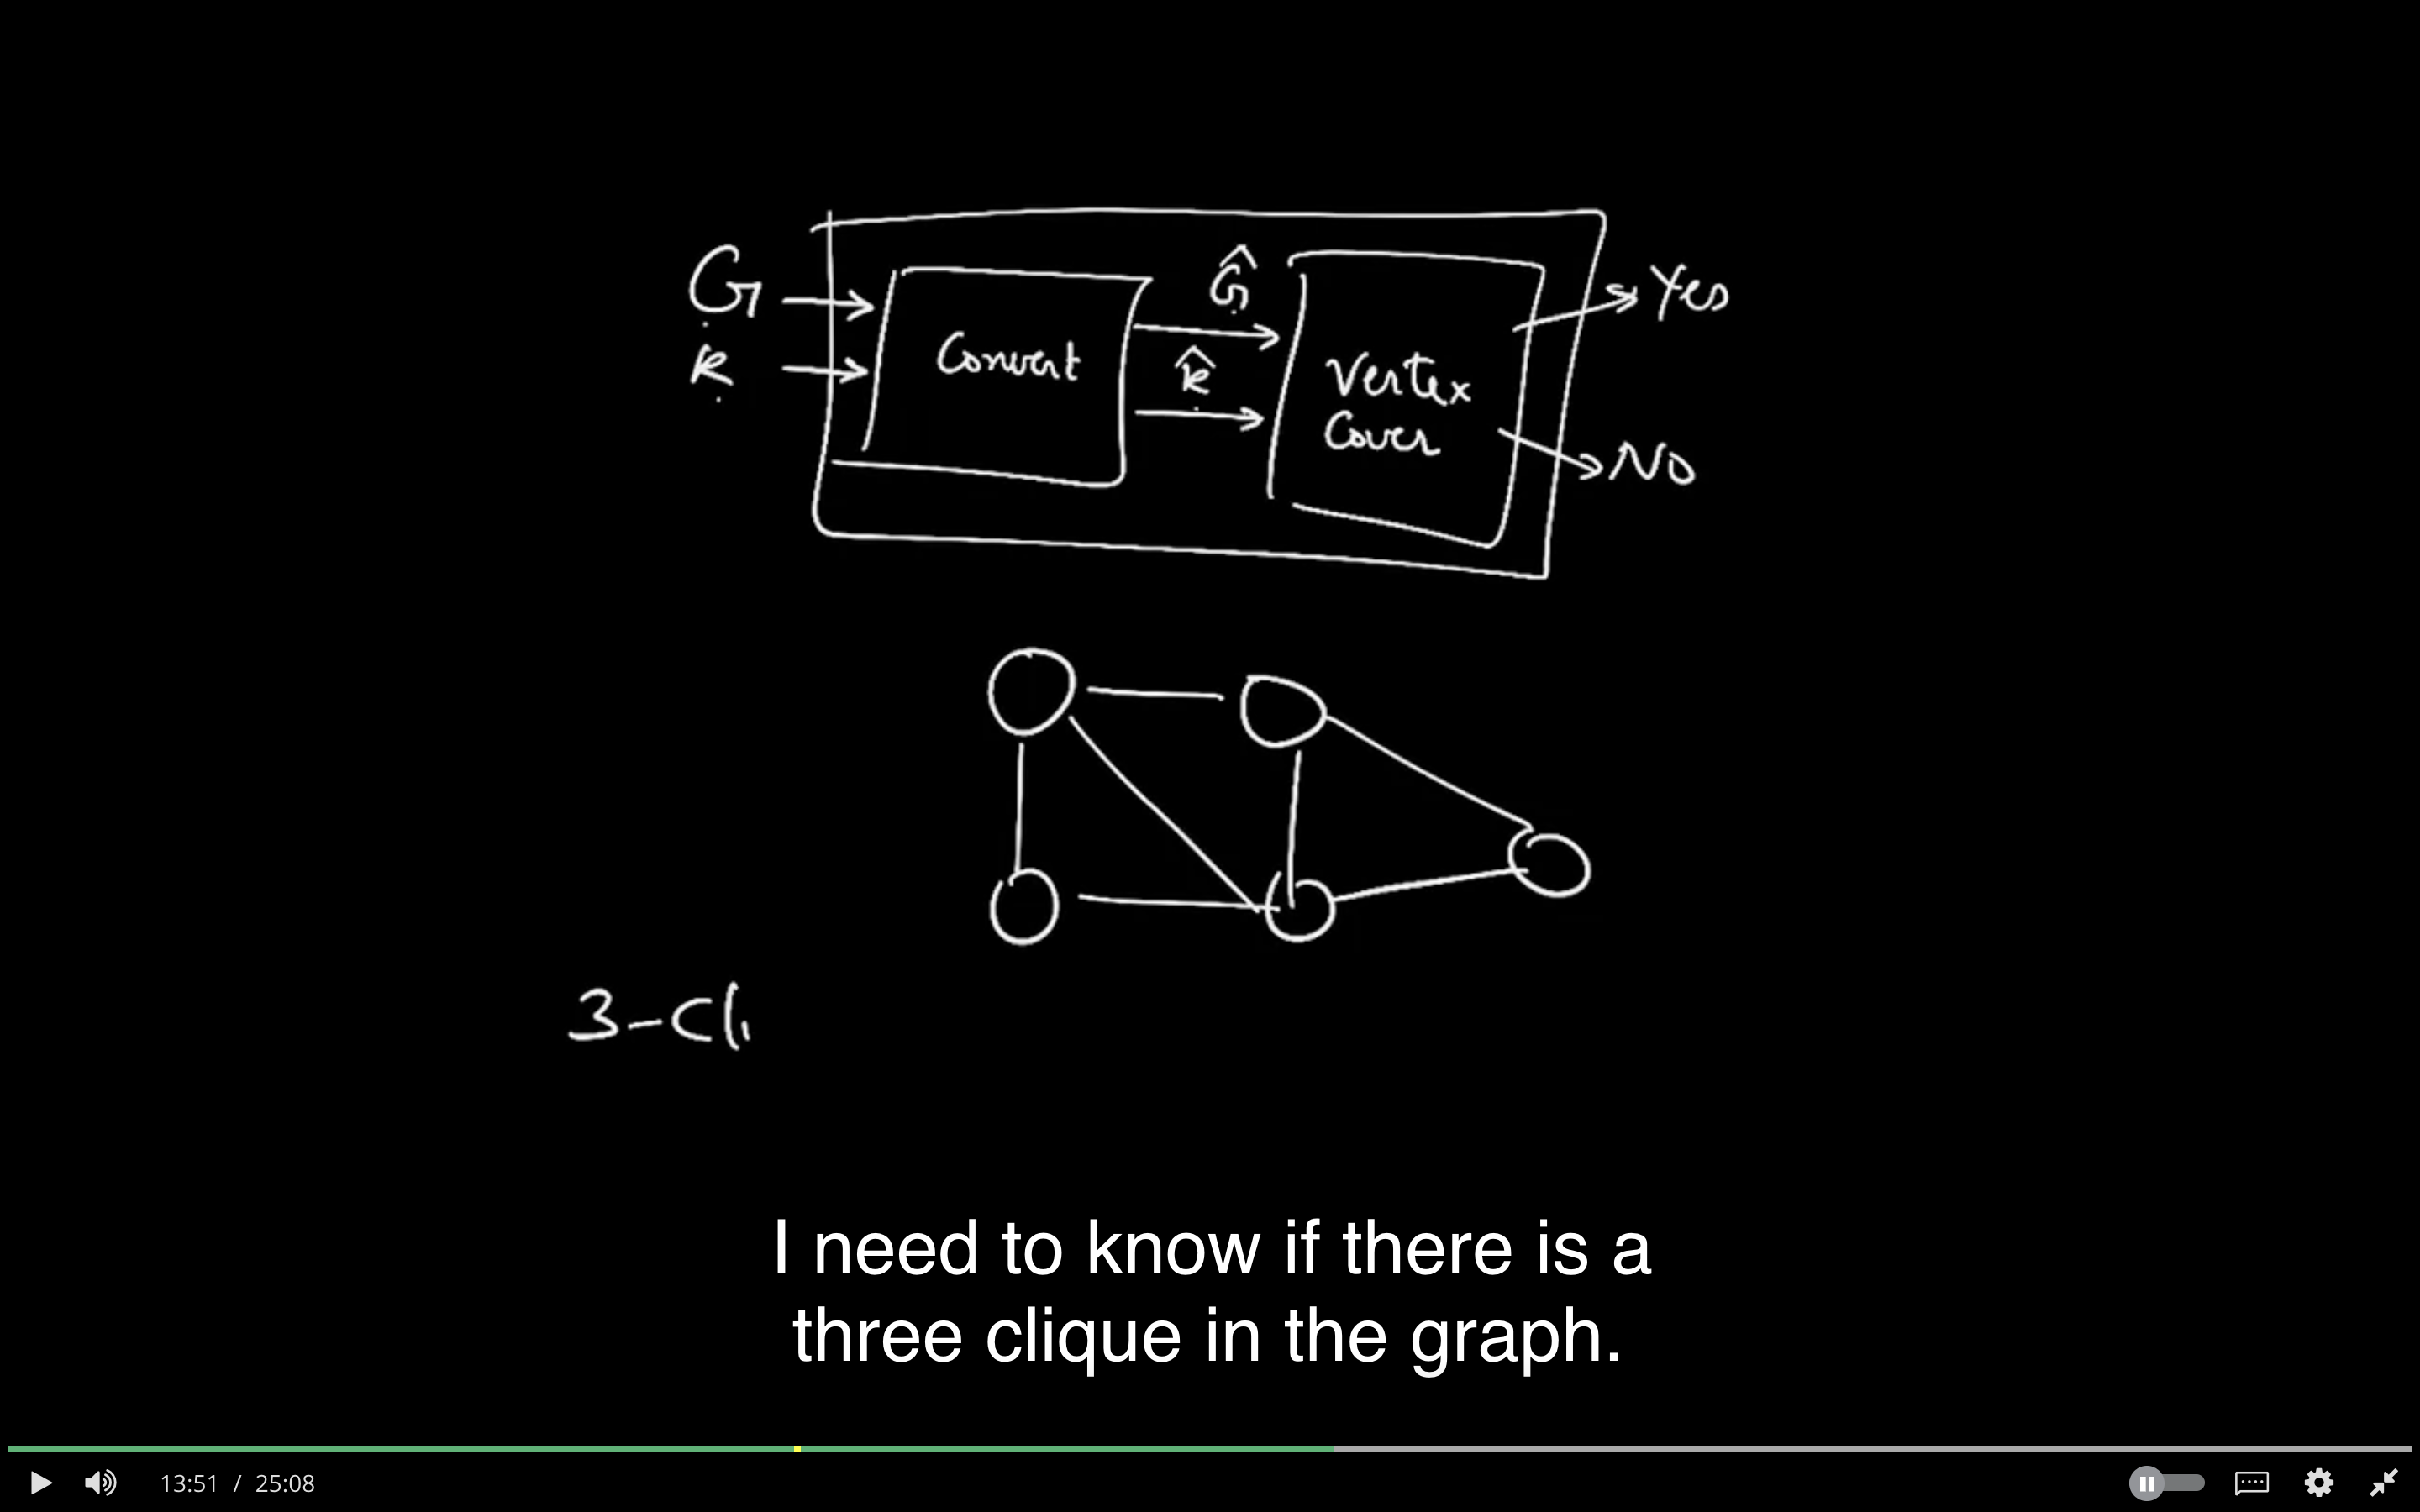 G
k
Convert
Ĝ
k̂
Vertex
Cover
Yes
No
3-Cli
I need to know if there is a
three clique in the graph.
13:51 / 25:08